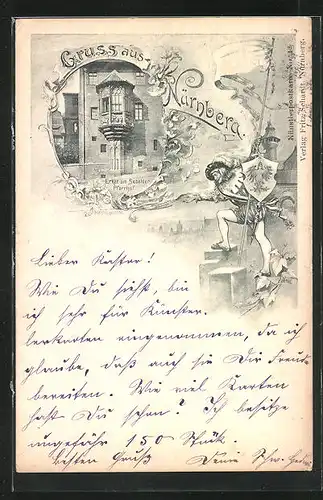 Gruss aus
Nürnberg.
Erker am Sebalder
Pfarrhof
Künstlerpostkarte No.
Verlag Fritz Schardt, Nürnberg.
Lieber Kastor!
Wie Du siehst, bin
ich sehr für Künstler-
lerkarten eingenommen, da ich
glaube, daß auch sie Dir Freud
bereiten. Wie viel Karten
hast Du schon? Ich besitze
ungefähr 150 Stück.
besten Gruß Deine Schw.